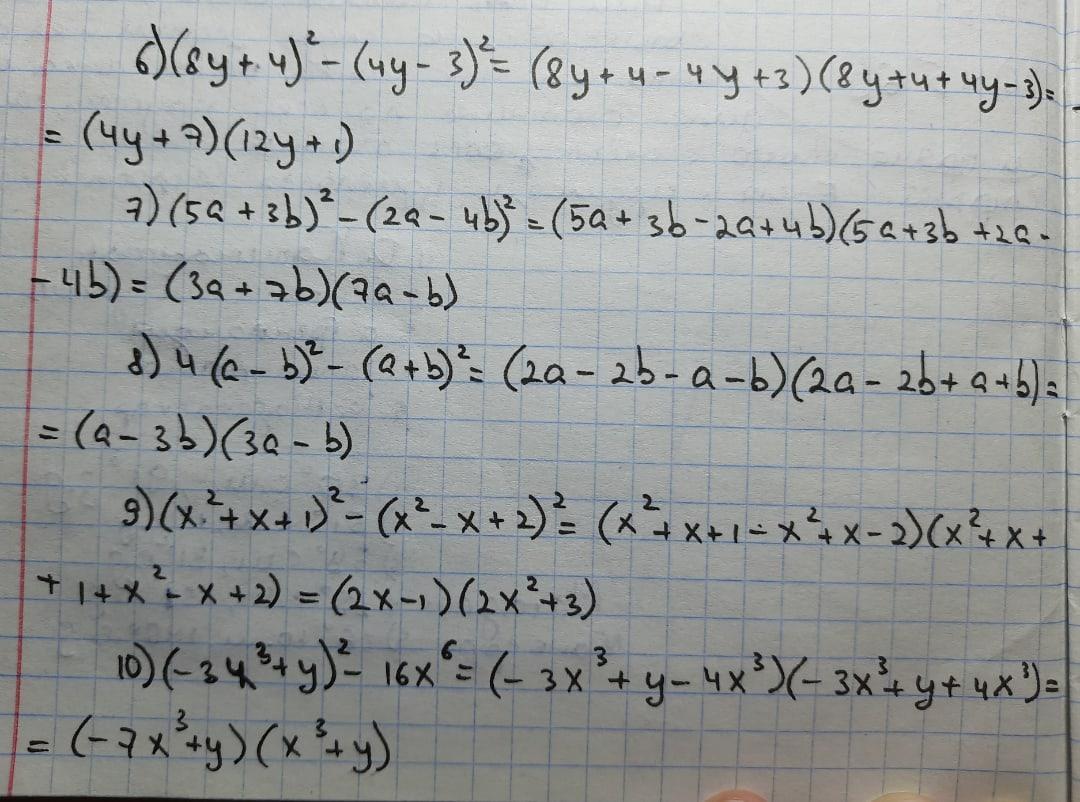 6)(8y+4)²-(4y-3)²=(8y+4-4y+3)(8y+4+4y-3)=
=(4y+7)(12y+1)
7)(5a+3b)²-(2a-4b)²=(5a+3b-2a+4b)(5a+3b+2a-
-4b)=(3a+7b)(7a-b)
8)4(a-b)²-(a+b)²=(2a-2b-a-b)(2a-2b+a+b)=
=(a-3b)(3a-b)
9)(x²+x+1)²-(x²-x+2)²=(x²+x+1-x²+x-2)(x²+x+
+1+x²-x+2)=(2x-1)(2x²+3)
10)(-3x³+y)²-16x⁶=(-3x³+y-4x³)(-3x³+y+4x³)=
=(-7x³+y)(x³+y)